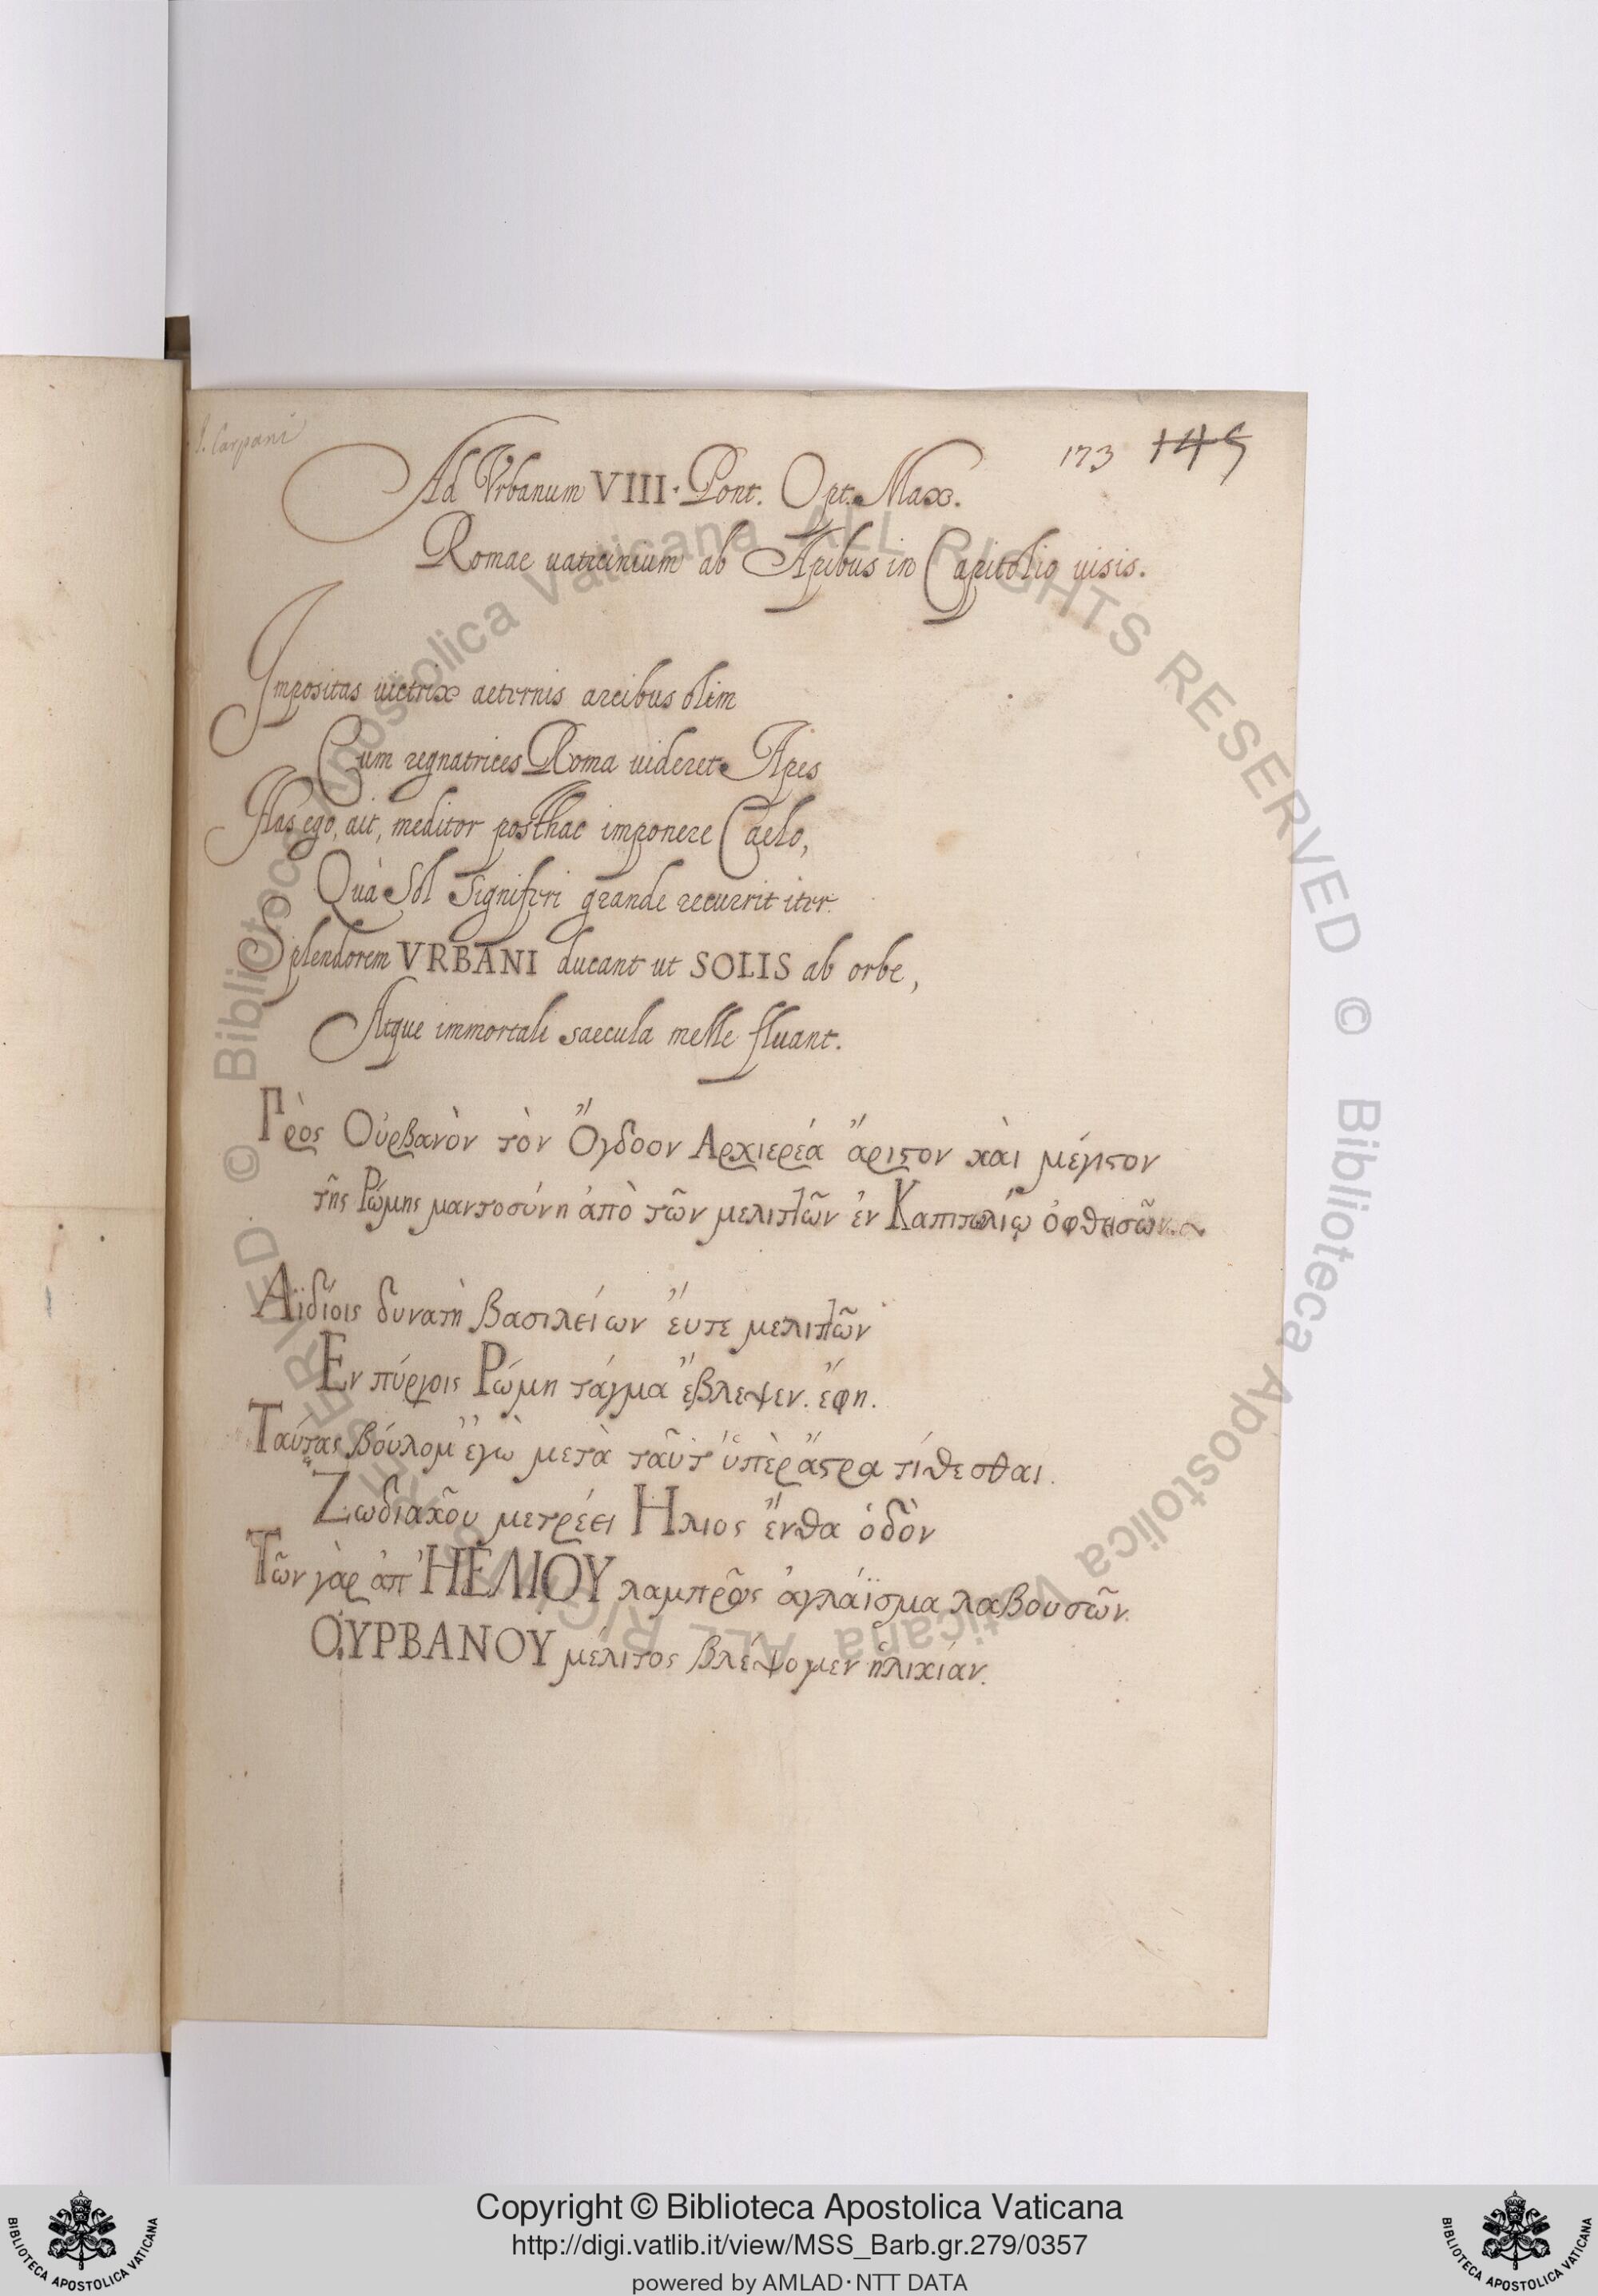 J. Carpani
173 145
Ad Vrbanum VIII. Pont. Opt. Max.
Romae uaticinium ab Apibus in Capitolio uisis.
Impositas uictrix aeternis arcibus olim
Cum regnatrices Roma uideret Apes
Has ego, ait, meditor posthac imponere Caelo,
Quà Sol Signiferi grande recurrit iter.
Splendorem VRBANI ducant ut SOLIS ab orbe,
Atque immortali saecula melle fluant.
Πρὸς Οὐρβανὸν τὸν Ὄγδοον Αρχιερέά ἄριστον κὰι μέγιστον
τῆς Ρώμης μαντοσύνη ἀπὸ τῶν μελιττῶν ἐν Καπιτωλίῳ ὀφθησῶν
Αϊδίοις δυνατὴ βασιλείων ἔυτε μελιττῶν
Εν πύργοις Ρώμη τάγμα ἔβλεψεν. ἔφη.
Ταύτας βόυλομ' ἐγὼ μετὰ ταῦτ' ὑπὲρ ἄστρα τίθεσθαι.
Ζωδιακοῦ μετρέει Ηλιος ἔνθα ὁδὸν
Τῶν γὰρ ἀπ' ἨΕΛΙΟΥ λαμπρῶς ἀγλάϊσμα λαβουσῶν.
ΟΥΡΒΑΝΟΥ μέλιτος βλέψομεν ἡλικίαν.
© Biblioteca Apostolica Vaticana ALL RIGHTS RESERVED © Biblioteca Apostolica Vaticana ALL RIGHTS RESERVED
Copyright © Biblioteca Apostolica Vaticana
http://digi.vatlib.it/view/MSS_Barb.gr.279/0357
powered by AMLAD·NTT DATA
BIBLIOTECA APOSTOLICA VATICANA
BIBLIOTECA APOSTOLICA VATICANA